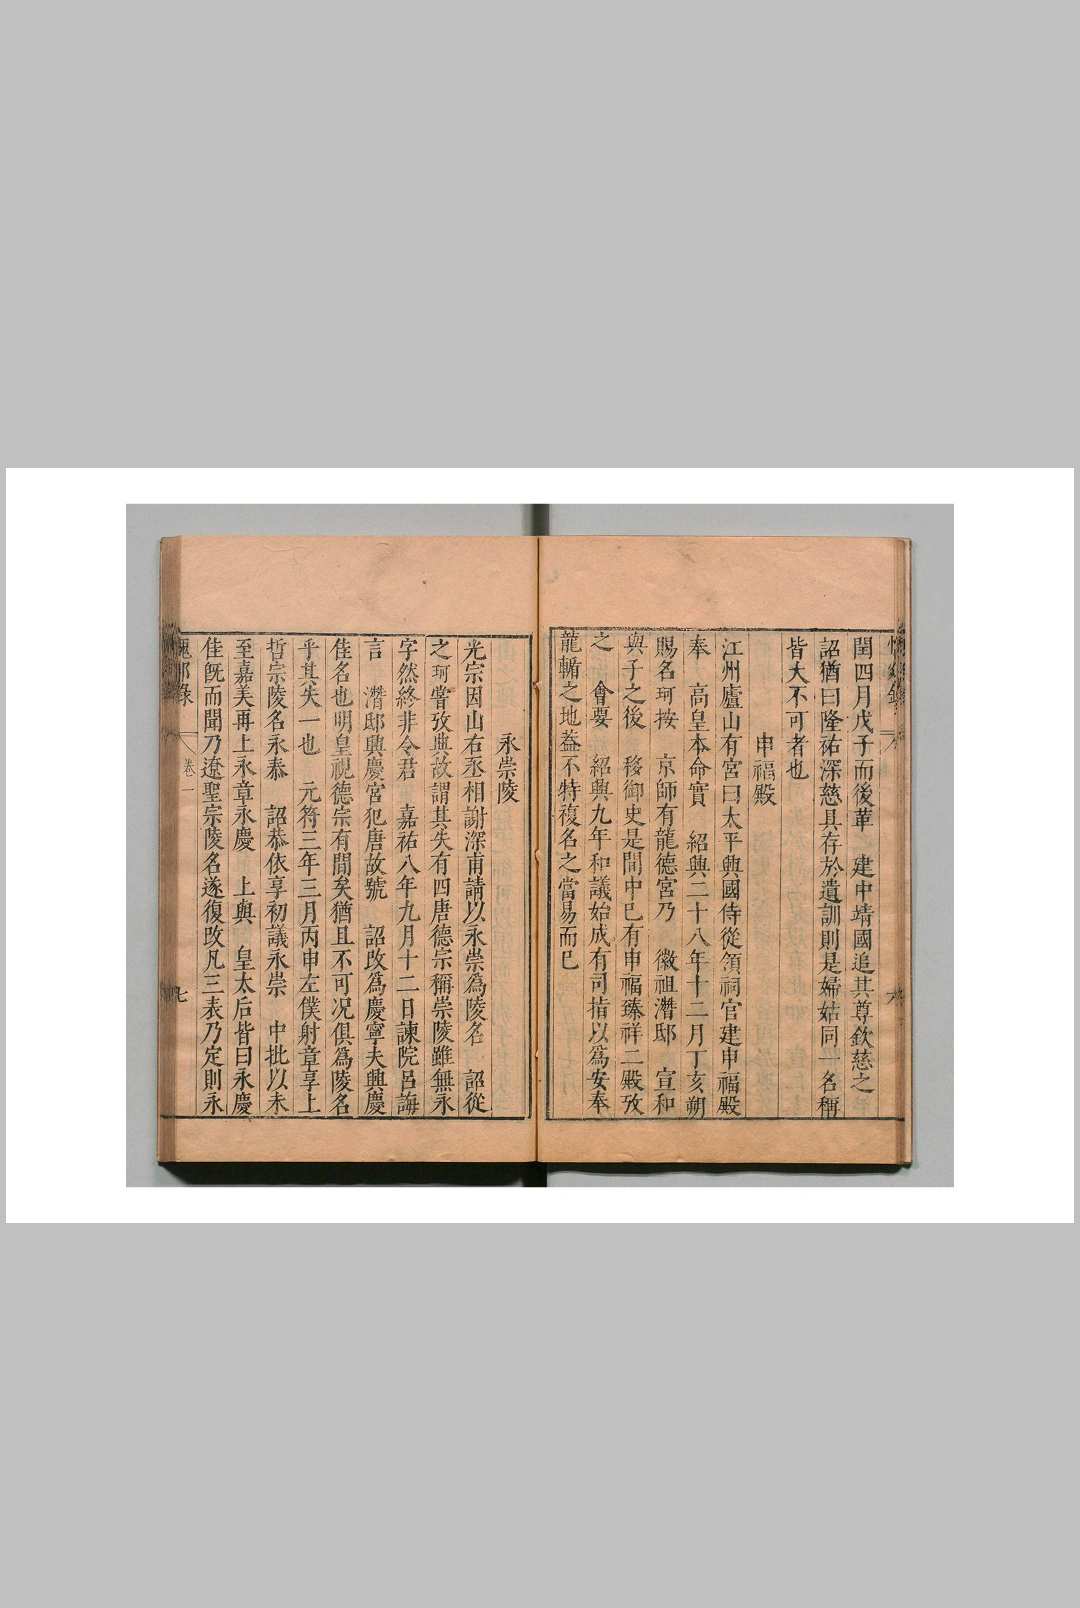 閏四月戊子而後葬　建中靖國追其尊欽慈之
詔猶曰隆祐深慈具存於遺訓則是婦姑同一名稱
皆大不可者也
申福殿
江州廬山有宮曰太平興國侍從領祠官建申福殿
奉　高皇本命實　紹興二十八年十二月丁亥朔
賜名珂按　京師有龍德宮乃　徽祖濳邸　宣和
與子之後　移御史是間中已有申福臻祥二殿攷
之　會要　紹興九年和議始成有司指以為安奉
龍輴之地葢不特複名之當易而已
永崇陵
光宗因山右丞相謝深甫請以永崇為陵名　詔從
之珂嘗攷典故謂其失有四唐德宗稱崇陵雖無永
字然終非令君　嘉祐八年九月十二日諫院呂誨
言　濳邸興慶宮犯唐故號　詔改為慶寧夫興慶
佳名也明皇視德宗有間矣猶且不可况俱為陵名
乎其失一也　元符三年三月丙申左僕射章享上
哲宗陵名永泰　詔恭依享初議永崇　中批以未
至嘉美再上永章永慶　上與　皇太后皆曰永慶
佳旣而聞乃遼聖宗陵名遂復改凡三表乃定則永
愧郯錄
卷一
七